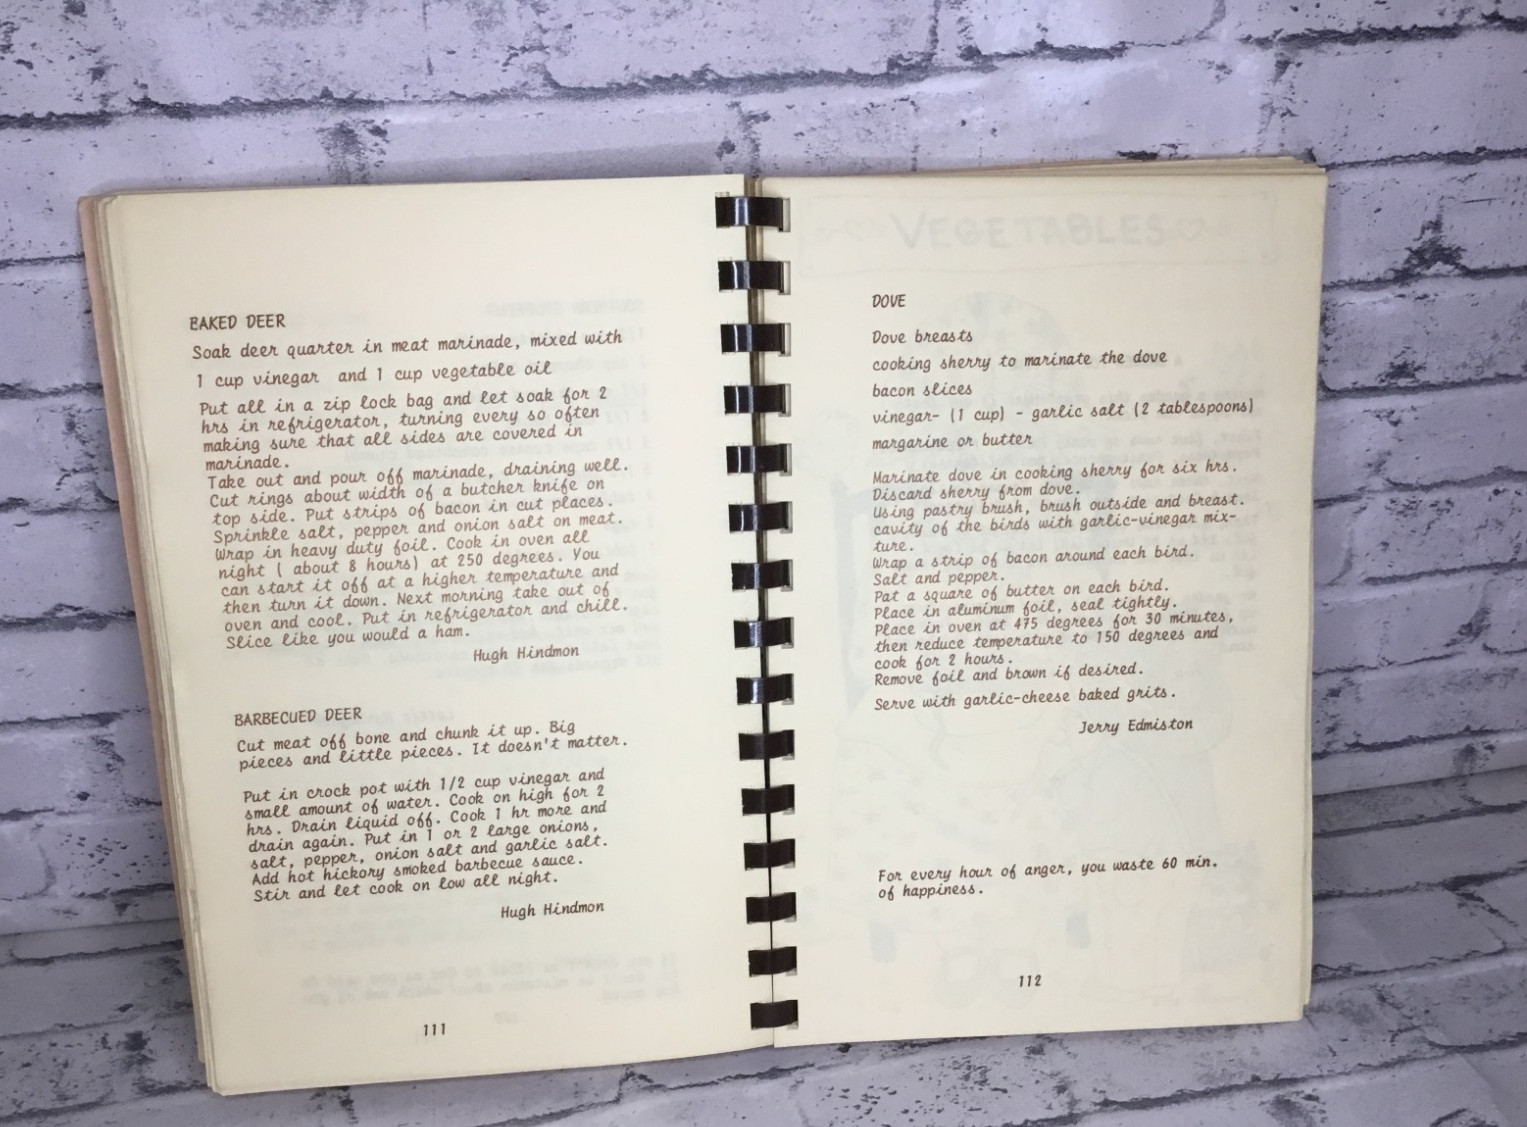 BAKED DEER
Soak deer quarter in meat marinade, mixed with
1 cup vinegar and 1 cup vegetable oil
Put all in a zip lock bag and let soak for 2
hrs in refrigerator, turning every so often
making sure that all sides are covered in
marinade.
Take out and pour off marinade, draining well.
Cut rings about width of a butcher knife on
top side. Put strips of bacon in cut places.
Sprinkle salt, pepper and onion salt on meat.
Wrap in heavy duty foil. Cook in oven all
night ( about 8 hours) at 250 degrees. You
can start it off at a higher temperature and
then turn it down. Next morning take out of
oven and cool. Put in refrigerator and chill.
Slice like you would a ham.
Hugh Hindmon
BARBECUED DEER
Cut meat off bone and chunk it up. Big
pieces and little pieces. It doesn't matter.
Put in crock pot with 1/2 cup vinegar and
small amount of water. Cook on high for 2
hrs. Drain liquid off. Cook 1 hr more and
drain again. Put in 1 or 2 large onions,
salt, pepper, onion salt and garlic salt.
Add hot hickory smoked barbecue sauce.
Stir and let cook on low all night.
Hugh Hindmon
111
VEGETABLES
DOVE
Dove breasts
cooking sherry to marinate the dove
bacon slices
vinegar- (1 cup) - garlic salt (2 tablespoons)
margarine or butter
Marinate dove in cooking sherry for six hrs.
Discard sherry from dove.
Using pastry brush, brush outside and breast.
cavity of the birds with garlic-vinegar mix-
ture.
Wrap a strip of bacon around each bird.
Salt and pepper.
Pat a square of butter on each bird.
Place in aluminum foil, seal tightly.
Place in oven at 475 degrees for 30 minutes,
then reduce temperature to 150 degrees and
cook for 2 hours.
Remove foil and brown if desired.
Serve with garlic-cheese baked grits.
Jerry Edmiston
For every hour of anger, you waste 60 min.
of happiness.
112